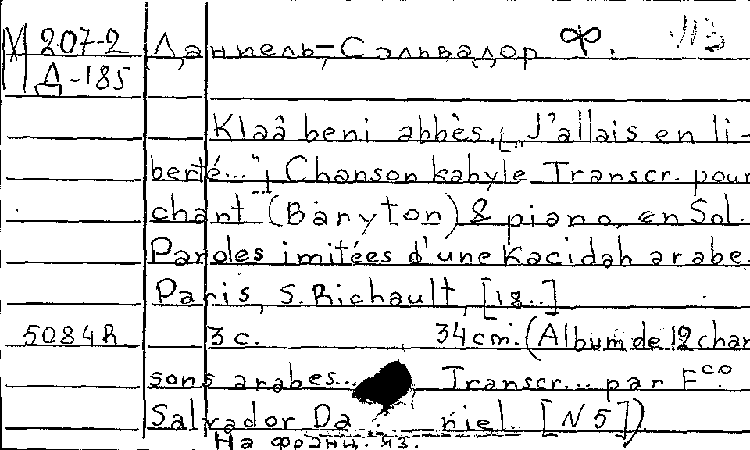 М 207-2 Даниель-Сальвадор Ф.
Д-185
Klaâ beni abbès. [„J'allais en li-
berté..."] Chanson kabyle Transcr. pour
chant (Baryton) & piano, en Sol.
Paroles imitées d'une Kacidah arabe.
Paris, S. Richault, [18..]
5084R 3 с. 34 cm. (Album de 12 chan
sons arabes... Transcr... par Fco.
Salvador Daniel. [N 5])
На франц. яз.